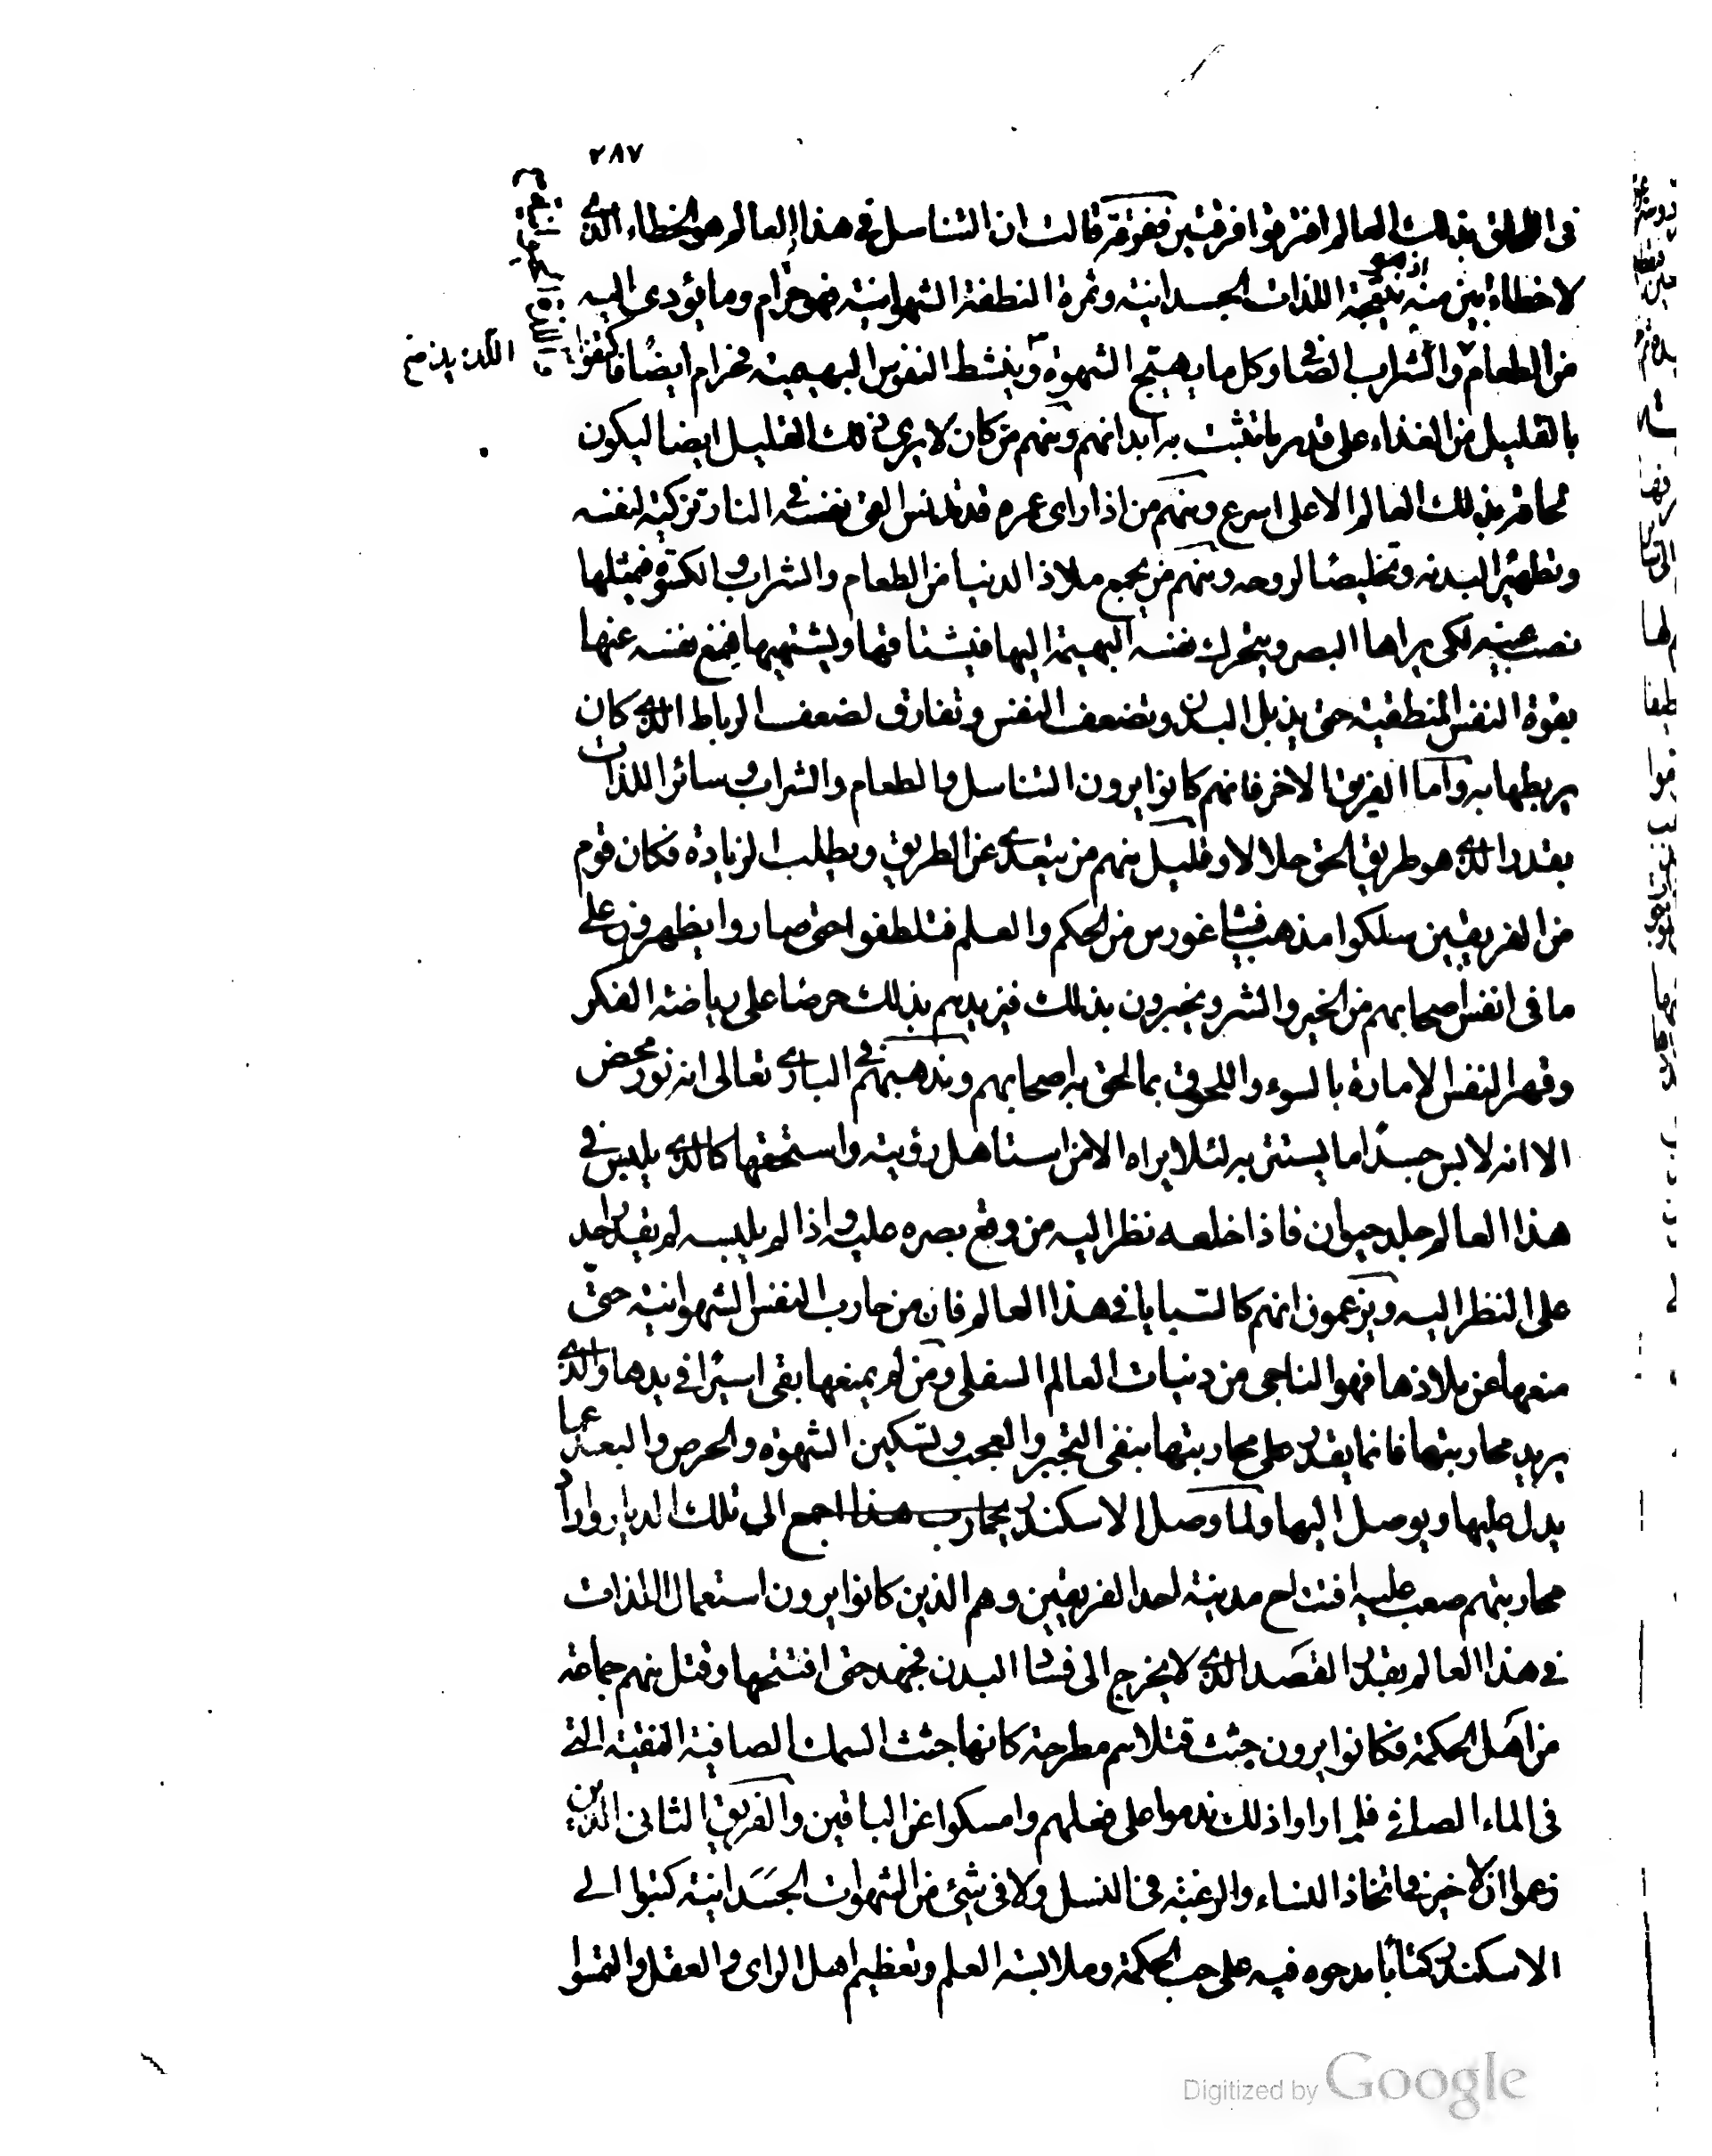 ٢٨٧
في اللحاق بذلك العالم افترقوا فرقتين ففرقة قالت ان التناسل في هذا العالم هو الخطاء الذي
لا خطاء ابين منه اذ هو نتيجة اللذات الجسدانية وثمرة النطفة الشهوانية فهو حرام وما يؤدي اليه
من الطعام والشراب الصافي وكل ما يهيج الشهوة وينشط النفوس البهيمية فحرام ايضا فاكتفوا
بالقليل من الغذاء على قدر ما تثبت به ابدانهم ومنهم من كان لا يرى ذلك القليل ايضا ليكون
لحاقه بذلك العالم الاعلى اسرع ومنهم من اذا راى عمره قد تدنس القى نفسه في النار تزكية لنفسه
وتطهيرا لبدنه وتخليصا لروحه ومنهم من يجمع ملاذ الدنيا من الطعام والشراب والكسوة فيمثلها
نصب عينيه لكي يراها البصر ويتحرك نفسه البهيمة اليها فيشتاقها ويشتهيها فيمنع نفسه عنها
بقوة النفس المنطقية حتى يذبل البدن وتضعف النفس وتفارق لضعف الرباط الذي كان
يربطها به واما الفريق الاخر فانهم كانوا يرون التناسل والطعام والشراب وسائر اللذات
بقدر الذي هو طريق الحق حلالا وقليل منهم من يتعدى عن الطريق ويطلب الزيادة فكان قوم
من الفريقين سلكوا مذهب فيثاغورس من الحكم والعلم فتلطفوا حتى صاروا يظهرون على
ما في انفس اصحابهم من الخير والشر ويخبرون بذلك فيزيدهم بذلك حرصا على رياضة الفكر
وقهر النفس الامارة بالسوء واللحوق بما لحق به اصحابهم ومذهبهم في البارى تعالى انه نور محض
الا انه لابس جسدا ما يستتر به لئلا يراه الا من استاهل رؤيته واستحقها كالذي يلبس في
هذا العالم جلد حيوان فاذا خلعه نظر اليه من وقع بصره عليه واذا لم يلبسه لم يقدر احد
على النظر اليه ويزعمون انهم كالسبايا في هذا العالم فان من حارب النفس الشهوانية حتى
منعها عن ملاذها فهو الناجي من دنيات العالم السفلي ومن لم يمنعها بقى اسيرا في يدها والذي
يريد محاربتها فانما يقدر على محاربتها بنفى التجبر والعجب وتسكين الشهوة والحرص والبعد عما
يدل عليها ويوصل اليها ولما وصل الاسكندر يحارب هذا اجمع الى تلك الديار واراد
محاربتهم صعب عليه افتتاح مدينة احد الفريقين وهم الذين كانوا يرون استعمال اللذات
في هذا العالم بقدر القصد الذي لا يخرج الى فساد البدن فجهد حتى افتتحها وقتل منهم جماعة
من اهل الحكمة فكانوا يرون جثث قتلاهم مطرحة كانها جثث السمك الصافية النقية التي
في الماء الصافي فلما راوا ذلك ندموا على فعلهم وامسكوا عن الباقين والفريق الثاني الذين
زعموا ان لا خير في اتخاذ النساء والرغبة في النسل ولا في شئ من الشهوات الجسدانية كتبوا الى
الاسكندر كتابا مدحوه فيه على حب الحكمة وملابسة العلم وتعظيم اهل الراى والعقل والتمسوا
Digitized by Google